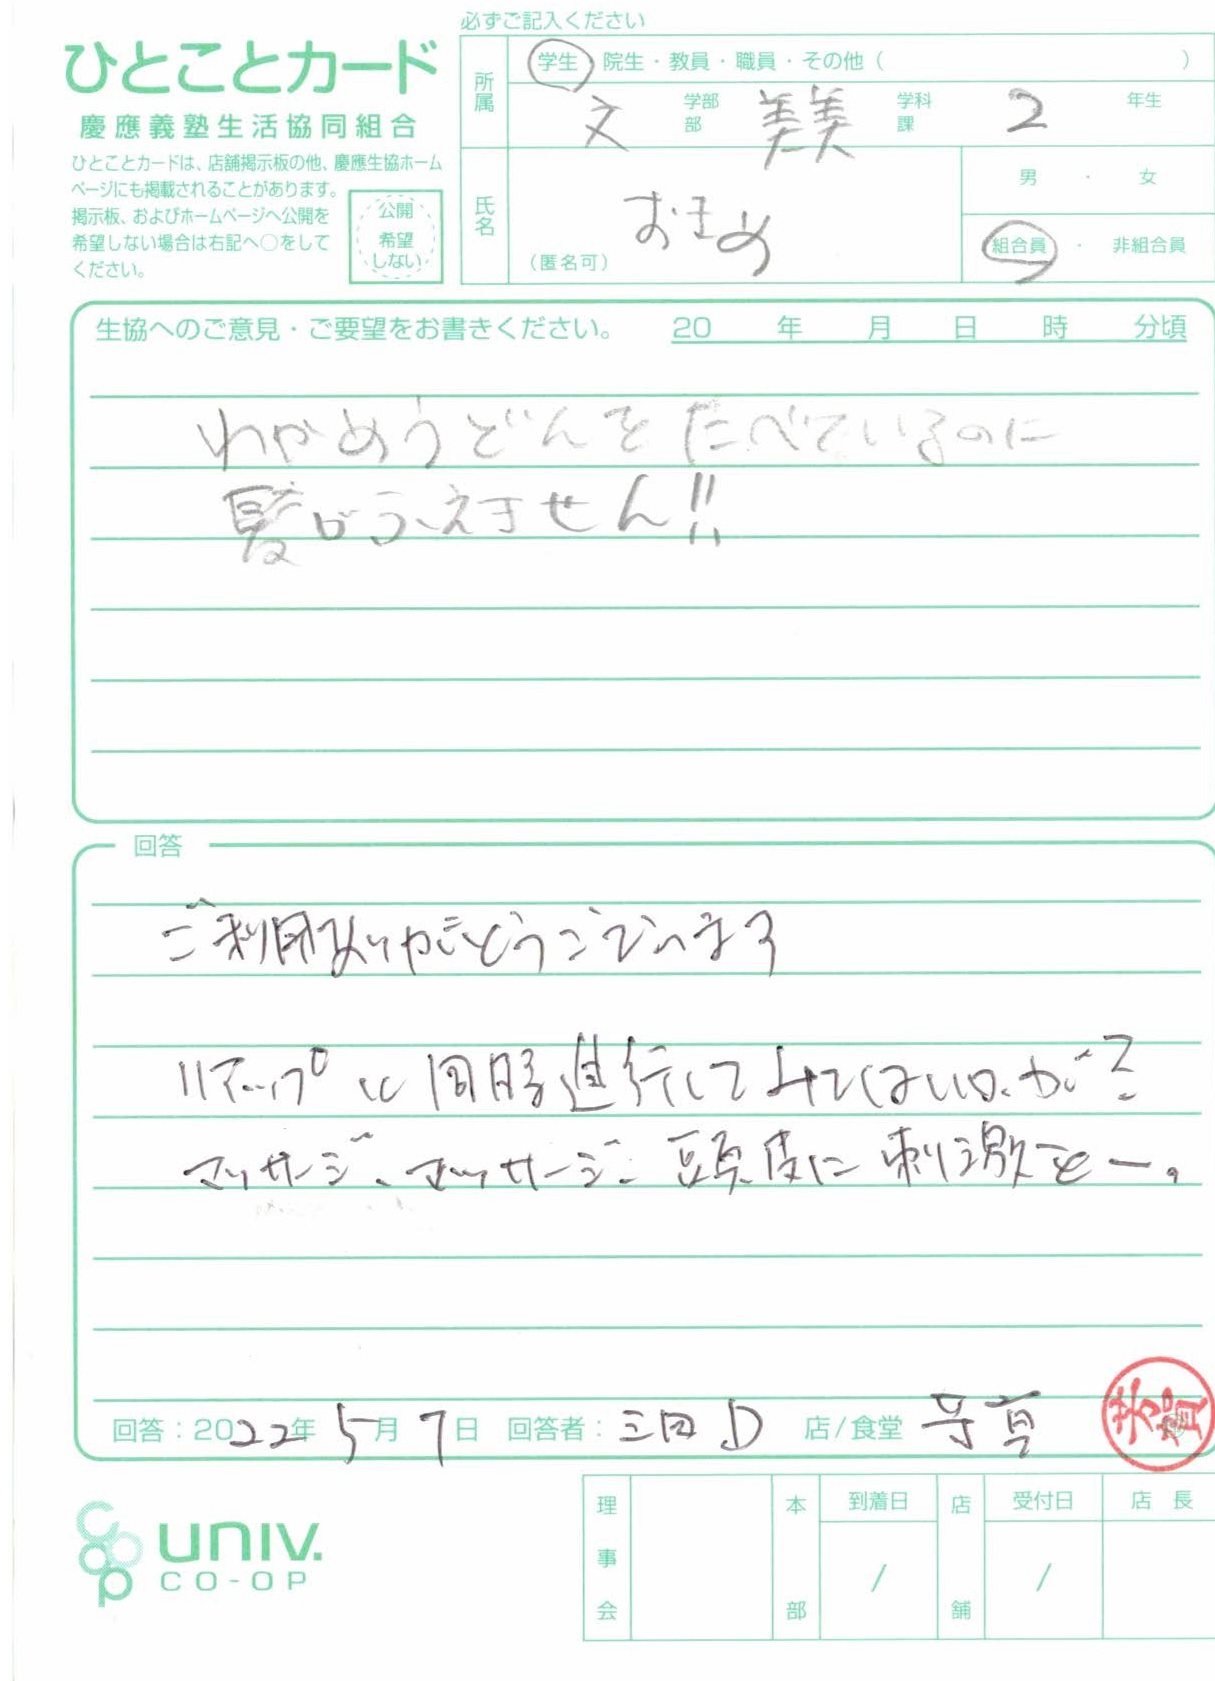 必ずご記入ください
ひとことカード
慶應義塾生活協同組合
ひとことカードは、店舗掲示板の他、慶應生協ホーム
ページにも掲載されることがあります。
掲示板、およびホームページへ公開を
希望しない場合は右記へ○をして
ください。
公開
希望
しない
所属
学生・院生・教員・職員・その他( )
文 学部 美美 学科 2 年生
部 課
氏名
おまめ
(匿名可)
男・女
組合員・非組合員
生協へのご意見・ご要望をお書きください。 20 年 月 日 時 分頃
わかめうどんをたべているのに
髪がふえません!!
回答
ご利用ありがとうございます
リアップと同時進行してみてはいかが?
マッサージ、マッサージ、頭皮に刺激をー。
回答:2022年5月7日 回答者:三田D 店/食堂
理事会
本部
到着日
/
店舗
受付日
/
店長
UNIV.
CO-OP
coop